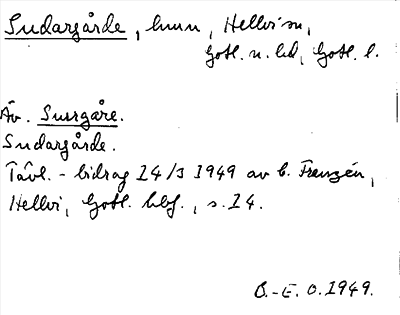 Sudargårde, hmn, Hellvi sn,
Gotl. n. hd, Gotl. l.
Äv. Surrgåre.
Sudargårde.
Tävl.-bidrag 14/3 1949 av C. Franzén,
Hellvi, Gotl. hbf., s. 14.
B.-E. O. 1949.